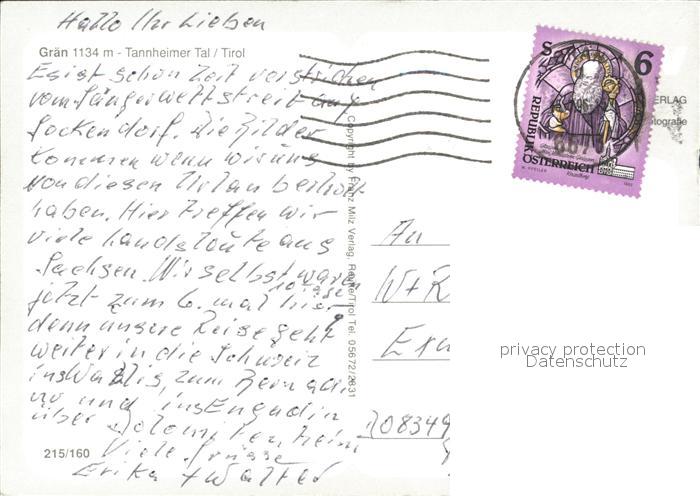 Hallo Ihr Lieben
Grän 1134 m - Tannheimer Tal / Tirol
Es ist schon Zeit verstrichen
vom Sängerwettstreit auf
Die Bilder
kommen wenn wir uns
von diesen Urlaub erholt
haben. Hier treffen wir
viele Landsleute aus
Sachsen. Wir selbst waren
jetzt zum 6. mal hier
10 Tage
denn unsere Reise geht
weiter in die Schweiz
ins Wallis, zum
und ins Engadin
über Dolomiten heim
Viele Grüße
Erika + Walter
215/160
Copyright by Franz Milz Verlag, Reutte/Tirol Tel. 05672/2631
S 6
REPUBLIK
ÖSTERREICH
ERLAG
otografie
An
W+R
08349
privacy protection
Datenschutz